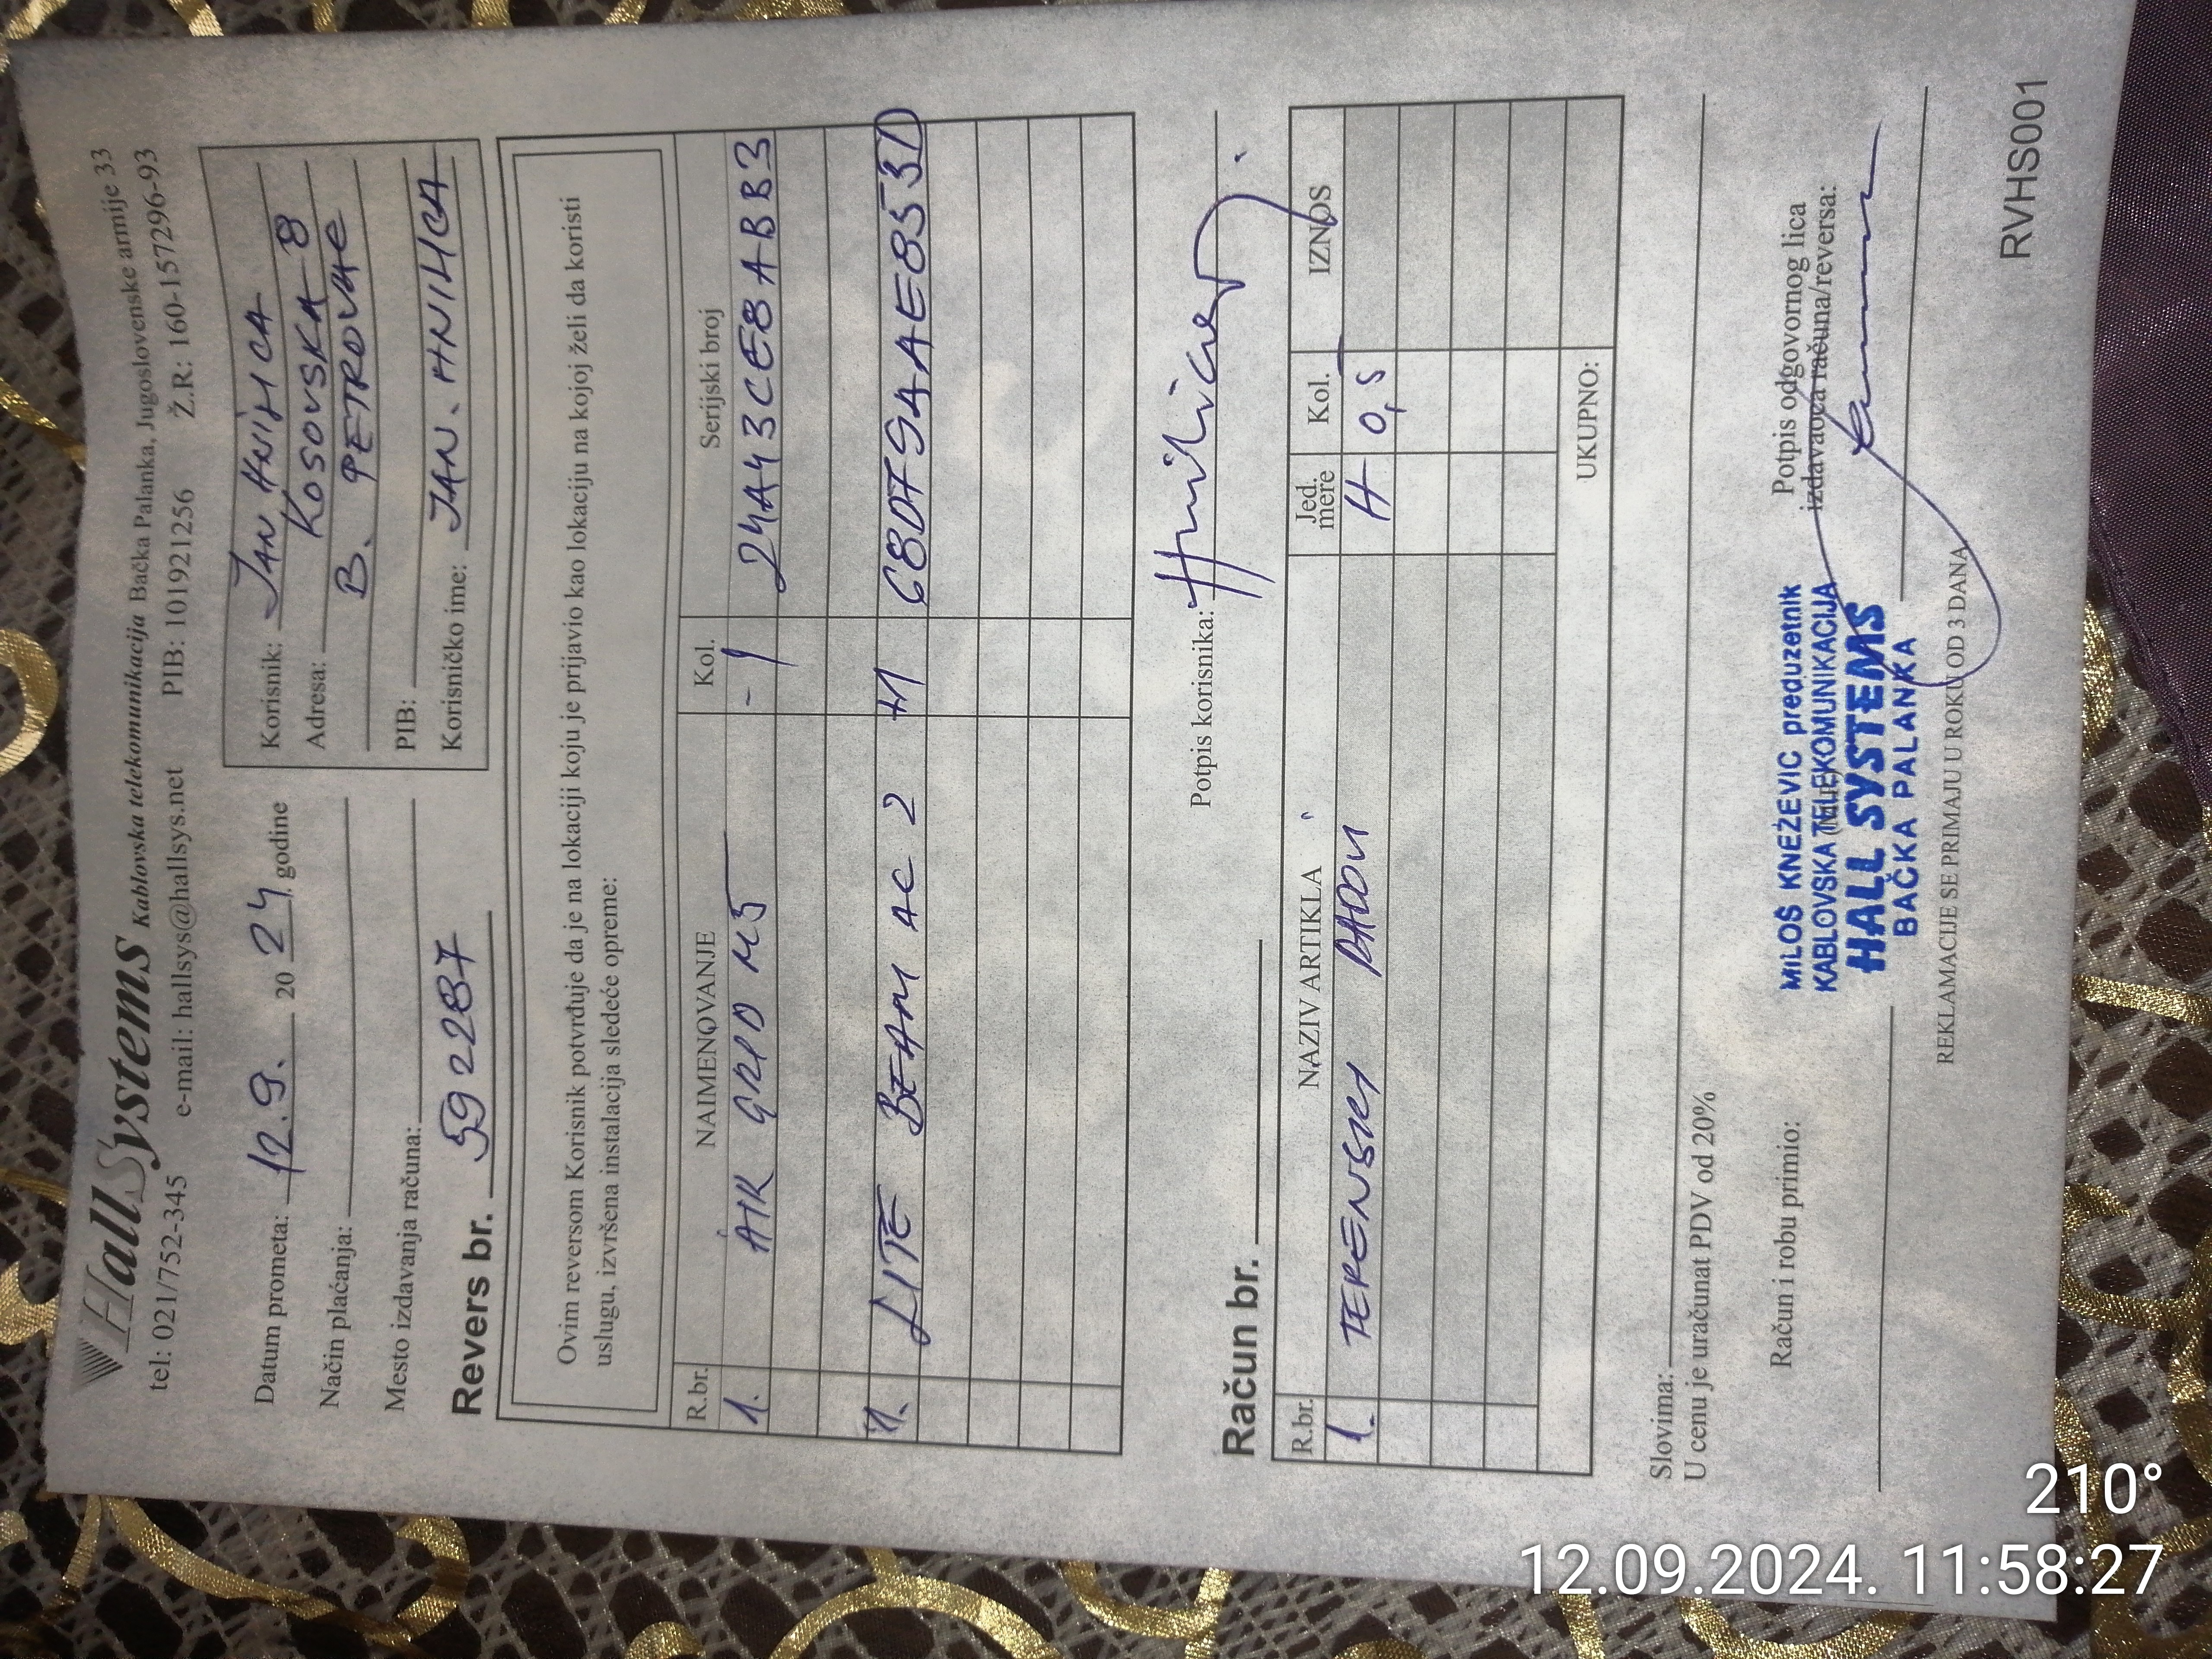 HallSystems Kablovska telekomunikacija Bačka Palanka, Jugoslovenske armije 33
tel: 021/752-345 e-mail: hallsys@hallsys.net PIB: 101921256 Ž.R: 160-157296-93
Datum prometa: 12.9. 20 24. godine
Način plaćanja:
Mesto izdavanja računa:
Revers br. 592287
Korisnik: JAN HNILICA
Adresa: KOSOVSKA 8
B. PETROVAC
PIB:
Korisničko ime: JAN.HNILICA
Ovim reversom Korisnik potvrđuje da je na lokaciji koju je prijavio kao lokaciju na kojoj želi da koristi
uslugu, izvršena instalacija sledeće opreme:
R.br. NAIMENOVANJE Kol. Serijski broj
1. AIR GRID M5 -1 24A43CE8ABB3
1. LITE BEAM AC 2 +1 68D79AAE853D
Potpis korisnika: Hnilica J.
Račun br.
R.br. NAZIV ARTIKLA Jed. mere Kol. IZNOS
1. TERENSKI RADOVI H 0,5
UKUPNO:
Slovima:
U cenu je uračunat PDV od 20%
Račun i robu primio:
Potpis odgovornog lica
izdavaoca računa/reversa:
MILOŠ KNEŽEVIĆ preduzetnik
KABLOVSKA TELEKOMUNIKACIJA
HALL SYSTEMS
BAČKA PALANKA
REKLAMACIJE SE PRIMAJU U ROKU OD 3 DANA
RVHS001
210°
12.09.2024. 11:58:27